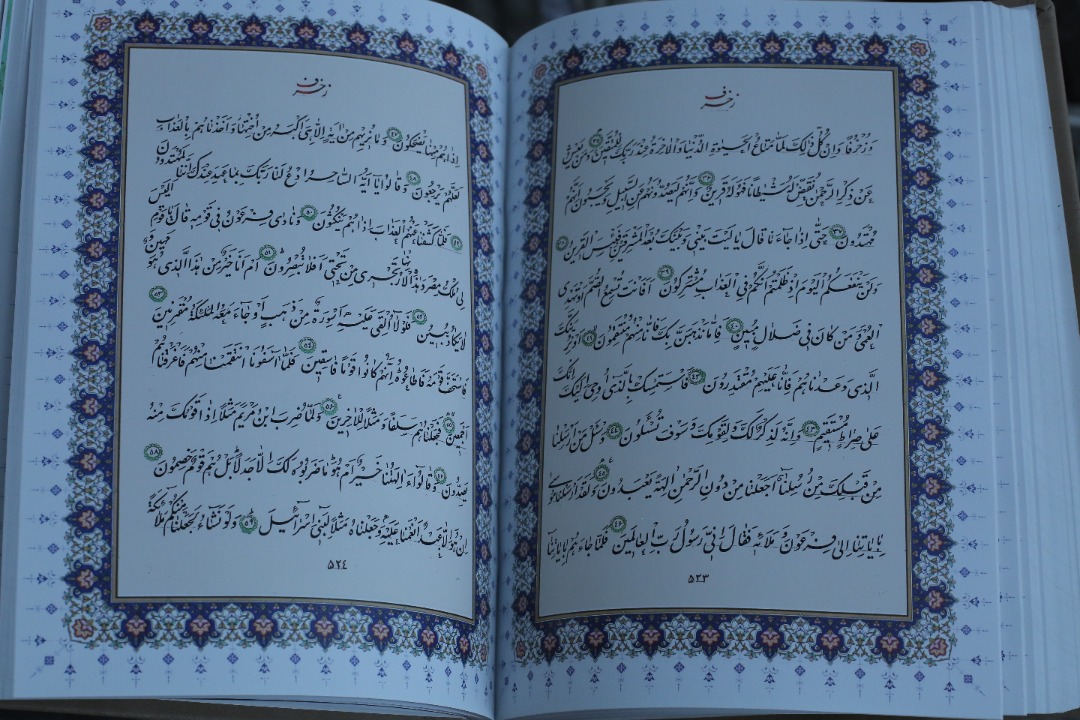 زخرف
وَزُخْرُفًا وَاِنْ كُلُّ ذٰلِكَ لَمَّا مَتَاعُ الْحَيٰوةِ الدُّنْيَا وَالْاٰخِرَةُ عِنْدَ رَبِّكَ لِلْمُتَّقِينَ ﴿۳۵﴾ وَمَنْ يَعْشُ
عَنْ ذِكْرِ الرَّحْمٰنِ نُقَيِّضْ لَهُ شَيْطَانًا فَهُوَ لَهُ قَرِينٌ ﴿۳۶﴾ وَاِنَّهُمْ لَيَصُدُّونَهُمْ عَنِ السَّبِيلِ وَيَحْسَبُونَ اَنَّهُمْ
مُهْتَدُونَ ﴿۳۷﴾ حَتّٰى اِذَا جَاءَنَا قَالَ يَا لَيْتَ بَيْنِي وَبَيْنَكَ بُعْدَ الْمَشْرِقَيْنِ فَبِئْسَ الْقَرِينُ ﴿۳۸﴾
وَلَنْ يَنْفَعَكُمُ الْيَوْمَ اِذْ ظَلَمْتُمْ اَنَّكُمْ فِي الْعَذَابِ مُشْتَرِكُونَ ﴿۳۹﴾ اَفَاَنْتَ تُسْمِعُ الصُّمَّ اَوْ تَهْدِي
الْعُمْيَ وَمَنْ كَانَ فِي ضَلَالٍ مُبِينٍ ﴿۴۰﴾ فَاِمَّا نَذْهَبَنَّ بِكَ فَاِنَّا مِنْهُمْ مُنْتَقِمُونَ ﴿۴۱﴾ اَوْ نُرِيَنَّكَ
الَّذِي وَعَدْنَاهُمْ فَاِنَّا عَلَيْهِمْ مُقْتَدِرُونَ ﴿۴۲﴾ فَاسْتَمْسِكْ بِالَّذِي اُوحِيَ اِلَيْكَ اِنَّكَ
عَلٰى صِرَاطٍ مُسْتَقِيمٍ ﴿۴۳﴾ وَاِنَّهُ لَذِكْرٌ لَكَ وَلِقَوْمِكَ وَسَوْفَ تُسْئَلُونَ ﴿۴۴﴾ وَسْئَلْ مَنْ اَرْسَلْنَا
مِنْ قَبْلِكَ مِنْ رُسُلِنَا اَجَعَلْنَا مِنْ دُونِ الرَّحْمٰنِ اٰلِهَةً يُعْبَدُونَ ﴿۴۵﴾ وَلَقَدْ اَرْسَلْنَا مُوسٰى
بِاٰيَاتِنَا اِلٰى فِرْعَوْنَ وَمَلَائِهِ فَقَالَ اِنِّي رَسُولُ رَبِّ الْعَالَمِينَ ﴿۴۶﴾ فَلَمَّا جَاءَهُمْ بِاٰيَاتِنَا
۵۲۳
زخرف
اِذَا هُمْ مِنْهَا يَضْحَكُونَ ﴿۴۷﴾ وَمَا نُرِيهِمْ مِنْ اٰيَةٍ اِلَّا هِيَ اَكْبَرُ مِنْ اُخْتِهَا وَاَخَذْنَاهُمْ بِالْعَذَابِ
لَعَلَّهُمْ يَرْجِعُونَ ﴿۴۸﴾ وَقَالُوا يَا اَيُّهَ السَّاحِرُ ادْعُ لَنَا رَبَّكَ بِمَا عَهِدَ عِنْدَكَ اِنَّنَا لَمُهْتَدُونَ
﴿۴۹﴾ فَلَمَّا كَشَفْنَا عَنْهُمُ الْعَذَابَ اِذَا هُمْ يَنْكُثُونَ ﴿۵۰﴾ وَنَادٰى فِرْعَوْنُ فِي قَوْمِهِ قَالَ يَا قَوْمِ اَلَيْسَ
لِي مُلْكُ مِصْرَ وَهٰذِهِ الْاَنْهَارُ تَجْرِي مِنْ تَحْتِي اَفَلَا تُبْصِرُونَ ﴿۵۱﴾ اَمْ اَنَا خَيْرٌ مِنْ هٰذَا الَّذِي هُوَ مَهِينٌ وَ
لَا يَكَادُ يُبِينُ ﴿۵۲﴾ فَلَوْلَا اُلْقِيَ عَلَيْهِ اَسْوِرَةٌ مِنْ ذَهَبٍ اَوْ جَاءَ مَعَهُ الْمَلٰئِكَةُ مُقْتَرِنِينَ ﴿۵۳﴾
فَاسْتَخَفَّ قَوْمَهُ فَاَطَاعُوهُ اِنَّهُمْ كَانُوا قَوْمًا فَاسِقِينَ ﴿۵۴﴾ فَلَمَّا اٰسَفُونَا انْتَقَمْنَا مِنْهُمْ فَاَغْرَقْنَاهُمْ
اَجْمَعِينَ ﴿۵۵﴾ فَجَعَلْنَاهُمْ سَلَفًا وَمَثَلًا لِلْاٰخِرِينَ ﴿۵۶﴾ وَلَمَّا ضُرِبَ ابْنُ مَرْيَمَ مَثَلًا اِذَا قَوْمُكَ مِنْهُ
يَصِدُّونَ ﴿۵۷﴾ وَقَالُوا ءَاٰلِهَتُنَا خَيْرٌ اَمْ هُوَ مَا ضَرَبُوهُ لَكَ اِلَّا جَدَلًا بَلْ هُمْ قَوْمٌ خَصِمُونَ ﴿۵۸﴾
اِنْ هُوَ اِلَّا عَبْدٌ اَنْعَمْنَا عَلَيْهِ وَجَعَلْنَاهُ مَثَلًا لِبَنِي اِسْرَائِيلَ ﴿۵۹﴾ وَلَوْ نَشَاءُ لَجَعَلْنَا مِنْكُمْ مَلٰئِكَةً
۵۲۴